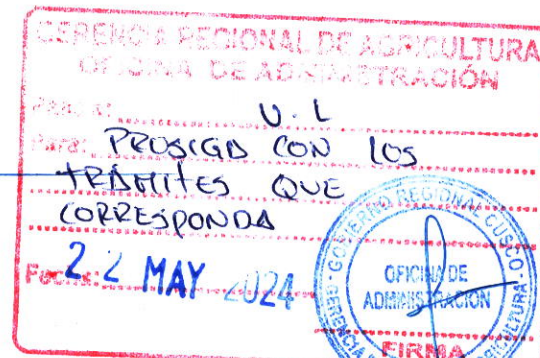 GERENCIA REGIONAL DE AGRICULTURA
OFICINA DE ADMINISTRACIÓN
U. L
Para: PROSIGA CON LOS
TRÁMITES QUE
CORRESPONDA
Fecha: 22 MAY 2024
GOBIERNO REGIONAL CUSCO
OFICINA DE
ADMINISTRACIÓN
FIRMA